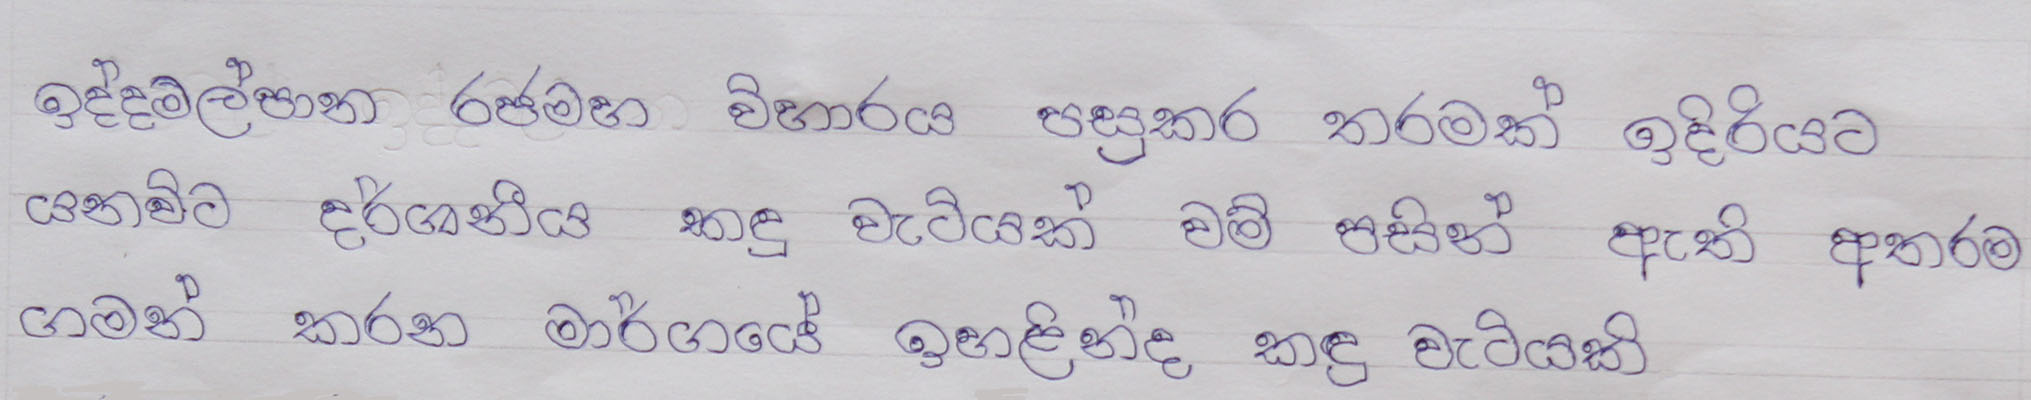 ඉද්දමල්පාන රජමහා විහාරය පසුකර තරමක් ඉදිරියට
යනවිට දර්ශනීය කඳු වැටියක් වම් පසින් ඇති අතරම
ගමන් කරන මාර්ගයේ ඉහළින්ද කඳු වැටියකි